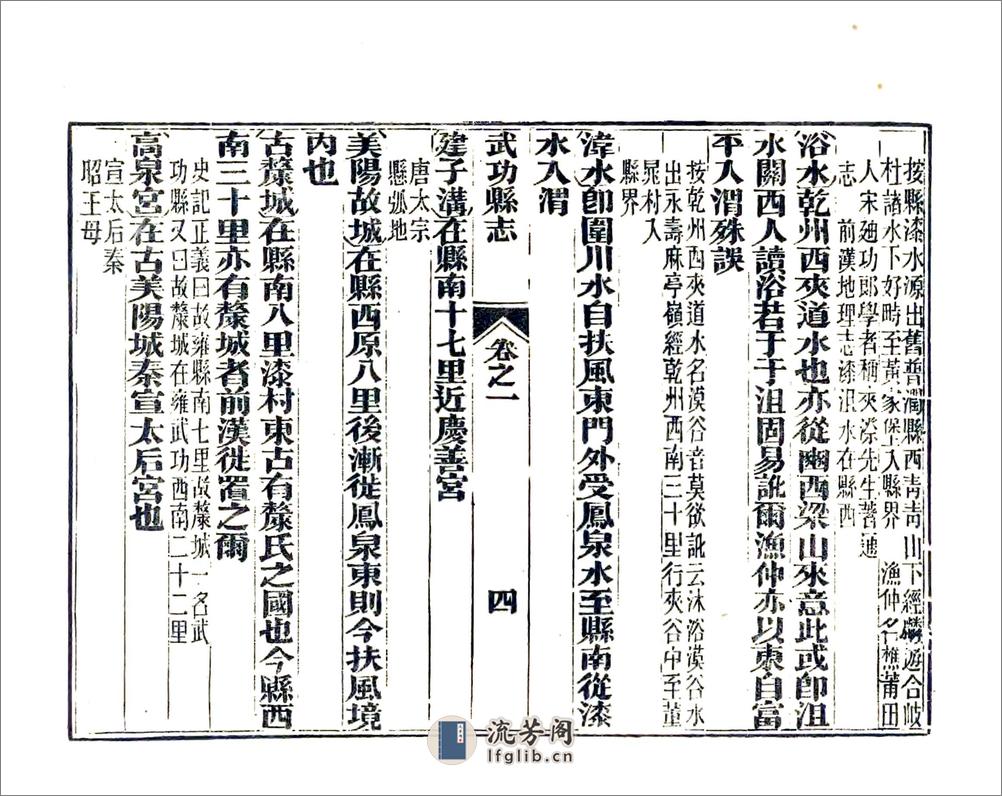 按縣漆水源出舊普潤縣西青青山下經麟遊合岐
杜諸水下好畤至黃家堡入縣界　漁仲名樵莆田
人宋廸功郎學者稱夾漈先生著通
志　前漢地理志漆沮水在縣西
浴水乾州西夾道水也亦從豳西梁山來意此或卽沮
水關西人讀浴若于于沮固易訛爾漁仲亦以東自富
平入渭殊誤
按乾州西夾道水名漠谷音莫欲訛云沐浴漠谷水
出永壽麻亭嶺經乾州西南三十里行夾谷中至董
晁村入
縣界
湋水卽圍川水自扶風東門外受鳳泉水至縣南從漆
水入渭
武功縣志
卷之一
四
建子溝在縣南十七里近慶善宮
唐太宗
懸弧地
美陽故城在縣西原八里後漸徙鳳泉東則今扶風境
內也
古斄城在縣南八里漆村東古有斄氏之國也今縣西
南三十里亦有斄城者前漢徙置之爾
史記正義曰故雍縣南七里故斄城一名武
功縣又曰故斄城在雍武功西南二十二里
高泉宮在古美陽城秦宣太后宮也
宣太后秦
昭王母
流芳阁
lfglib.cn